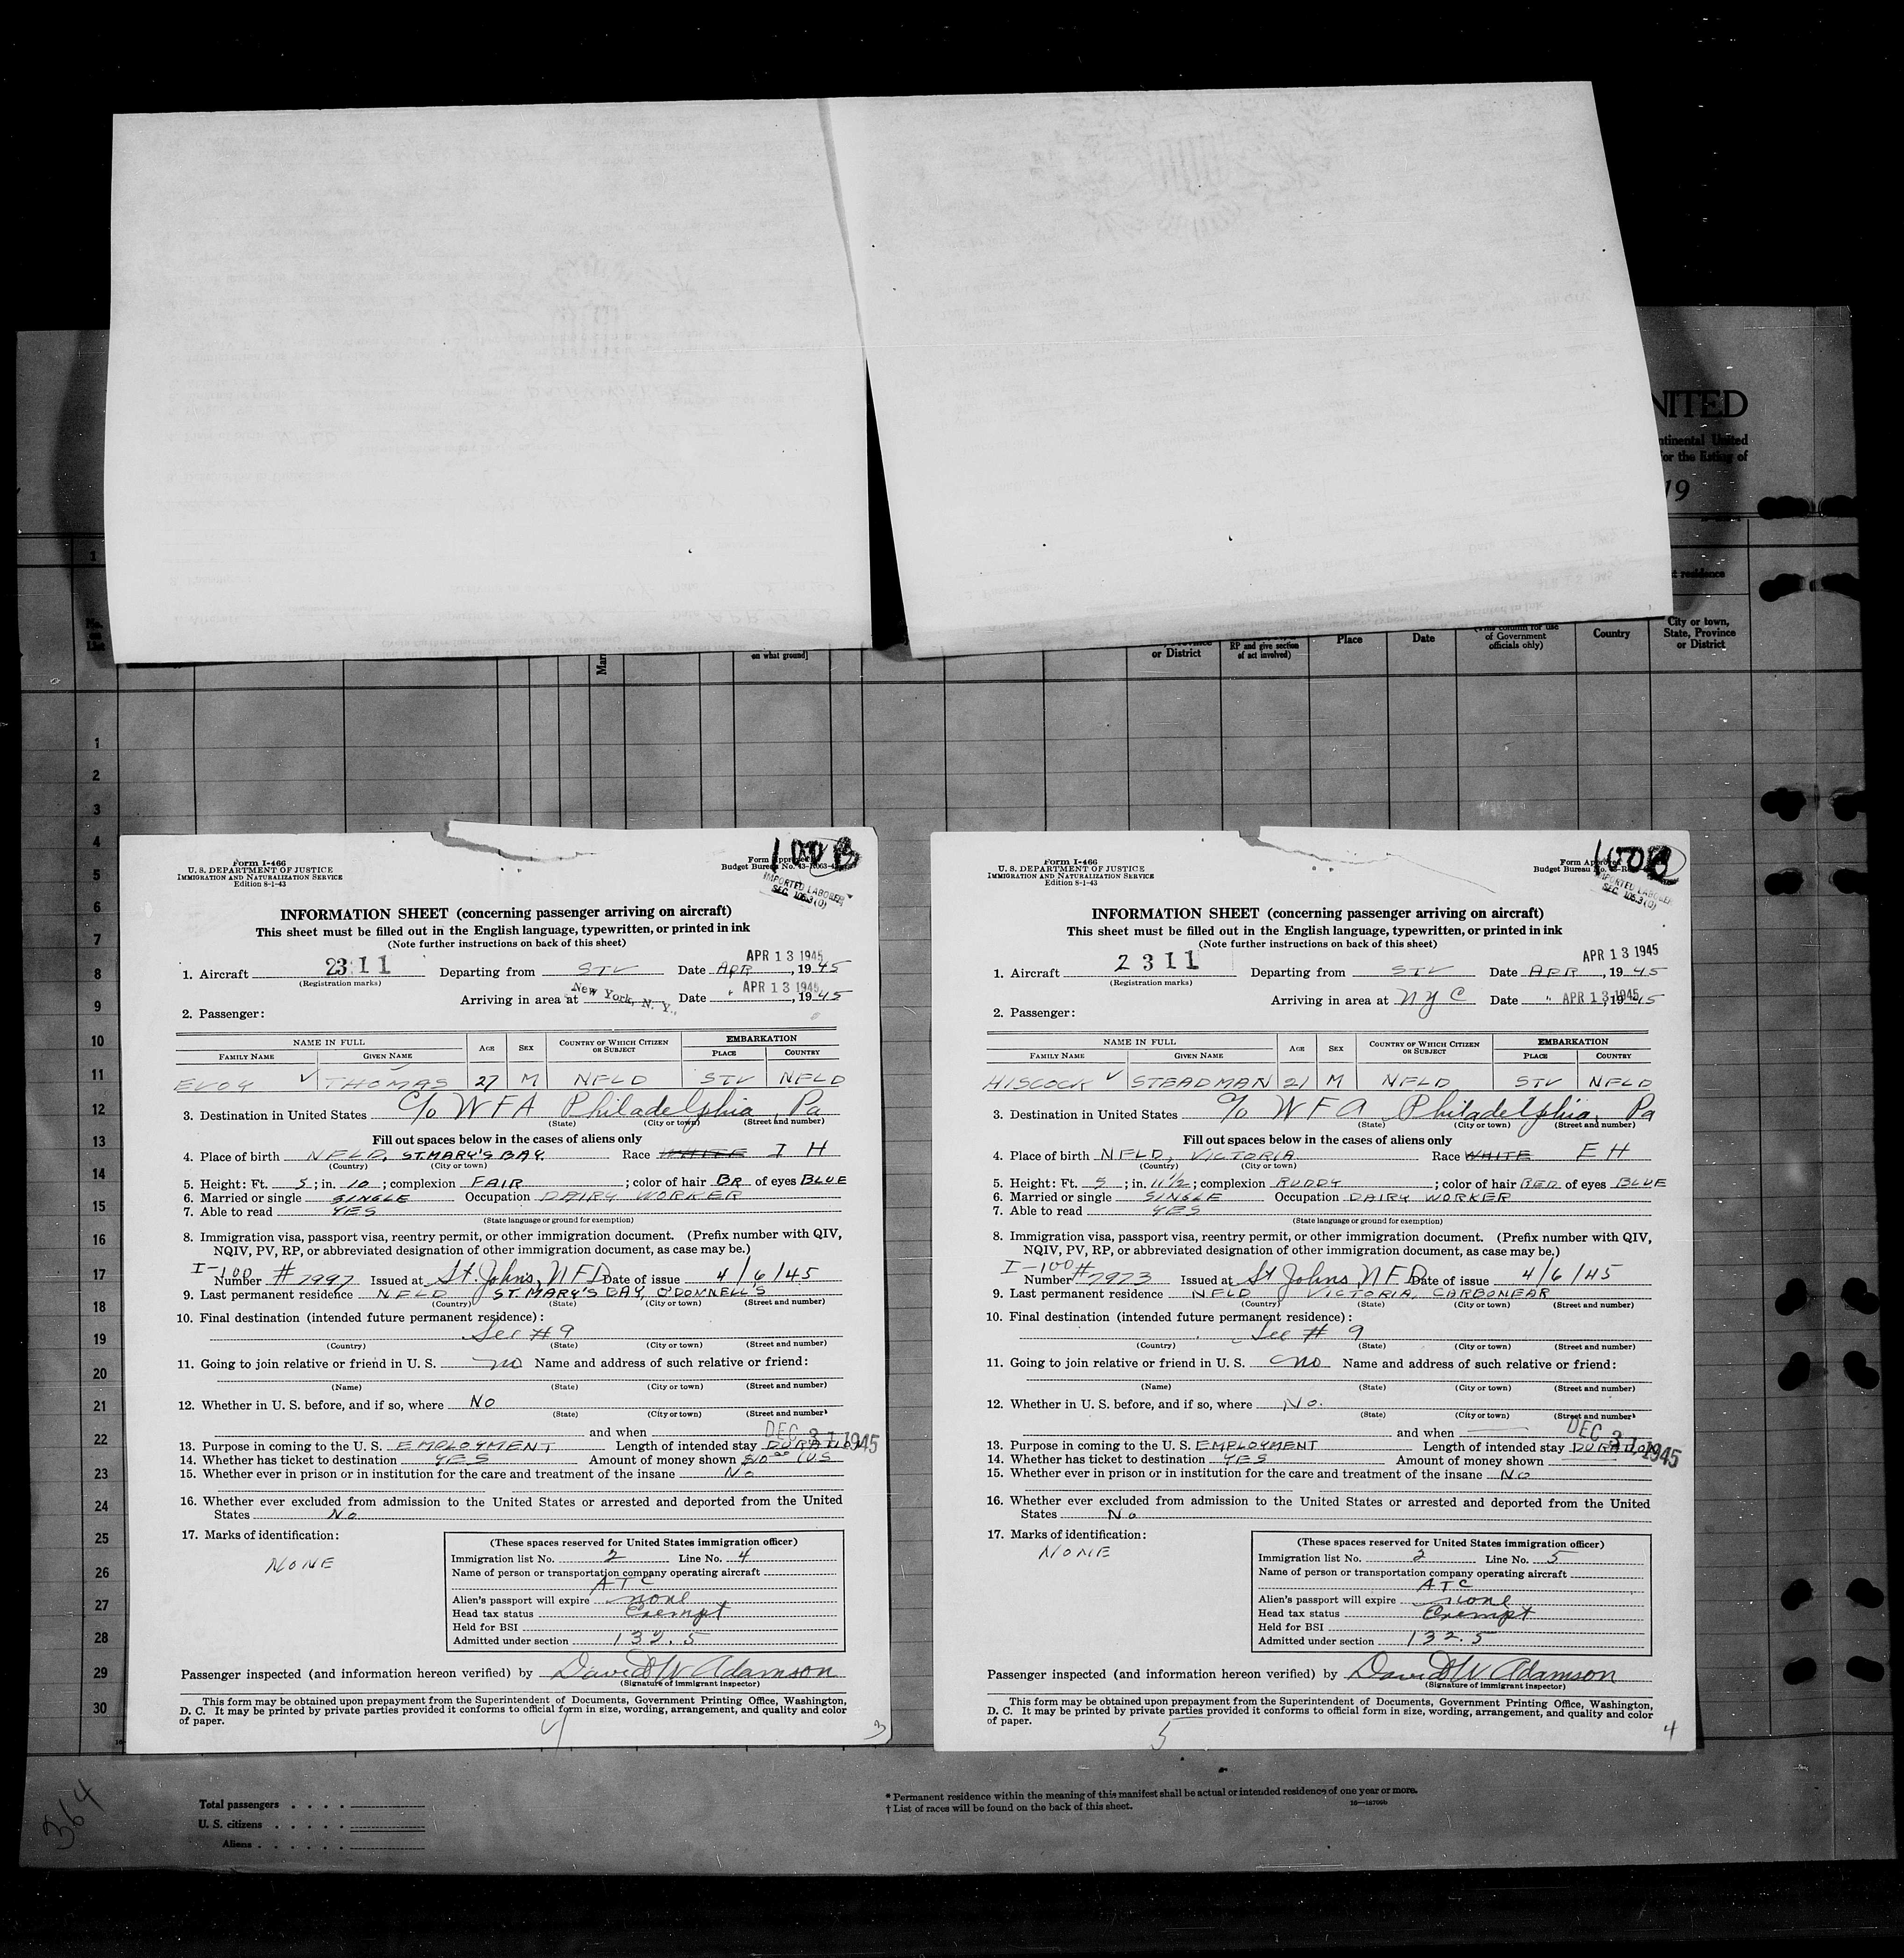 NITED
ntinental United
for the listing of
19
t residence
1
No. on List
Marr
on what ground]
or District
RP and give section of act involved)
Place
Date
(This column for use of Government officials only)
Country
City or town, State, Province or District
1
2
3
4
5
6
7
8
9
10
11
12
13
14
15
16
17
18
19
20
21
22
23
24
25
26
27
28
29
30
Form I-466
U. S. DEPARTMENT OF JUSTICE
IMMIGRATION AND NATURALIZATION SERVICE
Edition 8-1-43
Form Approved
Budget Bureau No. 43-R063-4
100 B
IMPORTED LABORER
SEC. 105.3(0)
INFORMATION SHEET (concerning passenger arriving on aircraft)
This sheet must be filled out in the English language, typewritten, or printed in ink
(Note further instructions on back of this sheet)
APR 13 1945
1. Aircraft 2311 Departing from STV Date APR, 1945
(Registration marks)
APR 13 1945
Arriving in area at New York, N. Y. Date " , 1945
2. Passenger:
NAME IN FULL AGE SEX COUNTRY OF WHICH CITIZEN OR SUBJECT EMBARKATION
FAMILY NAME GIVEN NAME PLACE COUNTRY
EVOY THOMAS 27 M NFLD STV NFLD
3. Destination in United States C/o WFA Philadelphia, Pa
(State) (City or town) (Street and number)
Fill out spaces below in the cases of aliens only
4. Place of birth NFLD, ST. MARY'S BAY. Race WHITE I H
(Country) (City or town)
5. Height: Ft. 5; in. 10; complexion FAIR; color of hair BR of eyes BLUE
6. Married or single SINGLE Occupation DAIRY WORKER
7. Able to read YES
(State language or ground for exemption)
8. Immigration visa, passport visa, reentry permit, or other immigration document. (Prefix number with QIV,
NQIV, PV, RP, or abbreviated designation of other immigration document, as case may be.)
I-100
Number #7997 Issued at St. John's, NFD Date of issue 4/6/45
9. Last permanent residence NFLD ST. MARY'S BAY, O'DONNELL'S
(Country) (State) (City or town) (Street and number)
10. Final destination (intended future permanent residence):
See #9
(Country) (State) (City or town) (Street and number)
11. Going to join relative or friend in U. S. no Name and address of such relative or friend:
(Name) (State) (City or town) (Street and number)
12. Whether in U. S. before, and if so, where NO
(State) (City or town) (Street and number)
and when
DEC 31 1945
13. Purpose in coming to the U. S. EMPLOYMENT Length of intended stay DURATION
14. Whether has ticket to destination YES Amount of money shown $10.00 US
15. Whether ever in prison or in institution for the care and treatment of the insane No
16. Whether ever excluded from admission to the United States or arrested and deported from the United
States No
17. Marks of identification:
NONE
(These spaces reserved for United States immigration officer)
Immigration list No. 2 Line No. 4
Name of person or transportation company operating aircraft
ATC
Alien's passport will expire none
Head tax status Exempt
Held for BSI
Admitted under section 132.5
Passenger inspected (and information hereon verified) by David W Adamson
(Signature of immigrant inspector)
This form may be obtained upon prepayment from the Superintendent of Documents, Government Printing Office, Washington,
D. C. It may be printed by private parties provided it conforms to official form in size, wording, arrangement, and quality and color
of paper.
4
3
Form I-466
U. S. DEPARTMENT OF JUSTICE
IMMIGRATION AND NATURALIZATION SERVICE
Edition 8-1-43
Form Approved
Budget Bureau No. 43-R
100B
IMPORTED LABORER
SEC. 105.3(0)
INFORMATION SHEET (concerning passenger arriving on aircraft)
This sheet must be filled out in the English language, typewritten, or printed in ink
(Note further instructions on back of this sheet)
APR 13 1945
1. Aircraft 2311 Departing from STV Date APR, 1945
(Registration marks)
Arriving in area at NYC Date " APR 13 1945, 1945
2. Passenger:
NAME IN FULL AGE SEX COUNTRY OF WHICH CITIZEN OR SUBJECT EMBARKATION
FAMILY NAME GIVEN NAME PLACE COUNTRY
HISCOCK STEADMAN 21 M NFLD STV NFLD
3. Destination in United States C/o WFA Philadelphia, Pa
(State) (City or town) (Street and number)
Fill out spaces below in the cases of aliens only
4. Place of birth NFLD, VICTORIA Race WHITE E H
(Country) (City or town)
5. Height: Ft. 5; in. 11 1/2; complexion RUDDY; color of hair RED of eyes BLUE
6. Married or single SINGLE Occupation DAIRY WORKER
7. Able to read YES
(State language or ground for exemption)
8. Immigration visa, passport visa, reentry permit, or other immigration document. (Prefix number with QIV,
NQIV, PV, RP, or abbreviated designation of other immigration document, as case may be.)
I-100
Number #7973 Issued at St Johns, NFD Date of issue 4/6/45
9. Last permanent residence NFLD VICTORIA, CARBONEAR
(Country) (State) (City or town) (Street and number)
10. Final destination (intended future permanent residence):
See # 9
(Country) (State) (City or town) (Street and number)
11. Going to join relative or friend in U. S. no Name and address of such relative or friend:
(Name) (State) (City or town) (Street and number)
12. Whether in U. S. before, and if so, where No.
(State) (City or town) (Street and number)
and when
DEC 31 1945
13. Purpose in coming to the U. S. EMPLOYMENT Length of intended stay DURATION
14. Whether has ticket to destination YES Amount of money shown
15. Whether ever in prison or in institution for the care and treatment of the insane NO
16. Whether ever excluded from admission to the United States or arrested and deported from the United
States No
17. Marks of identification:
NONE
(These spaces reserved for United States immigration officer)
Immigration list No. 2 Line No. 5
Name of person or transportation company operating aircraft
ATC
Alien's passport will expire none
Head tax status Exempt
Held for BSI
Admitted under section 132.5
Passenger inspected (and information hereon verified) by David W Adamson
(Signature of immigrant inspector)
This form may be obtained upon prepayment from the Superintendent of Documents, Government Printing Office, Washington,
D. C. It may be printed by private parties provided it conforms to official form in size, wording, arrangement, and quality and color
of paper.
5
4
364
Total passengers
U. S. citizens
Aliens
* Permanent residence within the meaning of this manifest shall be actual or intended residence of one year or more.
† List of races will be found on the back of this sheet.